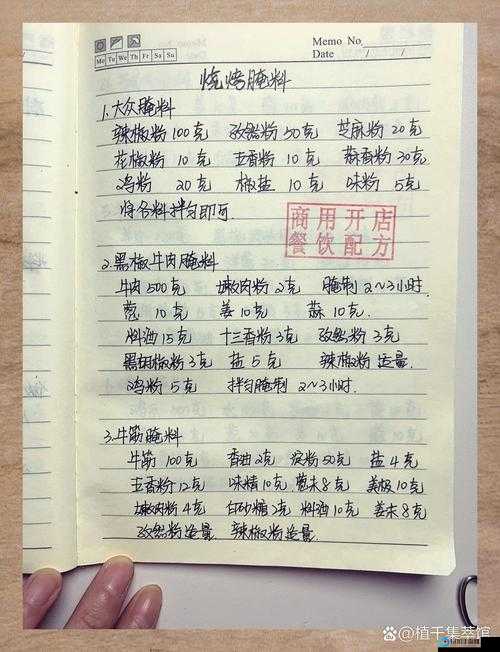 Memo No.
Mo Tu We Th Fr Sa Su
Date / /
烧烤腌料
1.大众腌料
辣椒粉100克 孜然粉50克 芝麻粉20克
花椒粉10克 五香粉10克 蒜香粉30克
鸡粉 20克 椒盐 10克 味粉 5克
将各料拌匀即可
商用开店
餐饮配方
2.黑椒牛肉腌料
牛肉500克 嫩肉粉2克 腌制2~3小时.
葱 10克 姜10克 蒜10克.
料酒15克 十三香粉3克 孜然粉3克
黑胡椒粉3克 盐5克 辣椒粉适量.
鸡粉5克 拌匀腌制 2~3小时.
3.牛筋腌料
牛筋 100克 香油2克 淀粉50克 盐4克
五香粉12克 味精10克 葱末8克 美极10克
嫩肉粉4克 白砂糖2克 料酒10克 姜末8克
孜然粉适量. 辣椒粉适量.
百家号/植千集萃馆